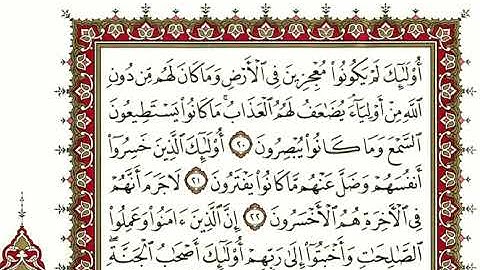 أُوْلَٰٓئِكَ لَمْ يَكُونُواْ مُعْجِزِينَ فِى ٱلْأَرْضِ وَمَا كَانَ لَهُم مِّن دُونِ
ٱللَّهِ مِنْ أَوْلِيَآءَ ۘ يُضَٰعَفُ لَهُمُ ٱلْعَذَابُ ۚ مَا كَانُواْ يَسْتَطِيعُونَ
ٱلسَّمْعَ وَمَا كَانُواْ يُبْصِرُونَ ٢٠ أُوْلَٰٓئِكَ ٱلَّذِينَ خَسِرُوٓاْ
أَنفُسَهُمْ وَضَلَّ عَنْهُم مَّا كَانُواْ يَفْتَرُونَ ٢١ لَا جَرَمَ أَنَّهُمْ
فِى ٱلْأَخِرَةِ هُمُ ٱلْأَخْسَرُونَ ٢٢ إِنَّ ٱلَّذِينَ ءَامَنُواْ وَعَمِلُواْ
ٱلصَّٰلِحَٰتِ وَأَخْبَتُوٓاْ إِلَىٰ رَبِّهِمْ أُوْلَٰٓئِكَ أَصْحَٰبُ ٱلْجَنَّةِ ۖ